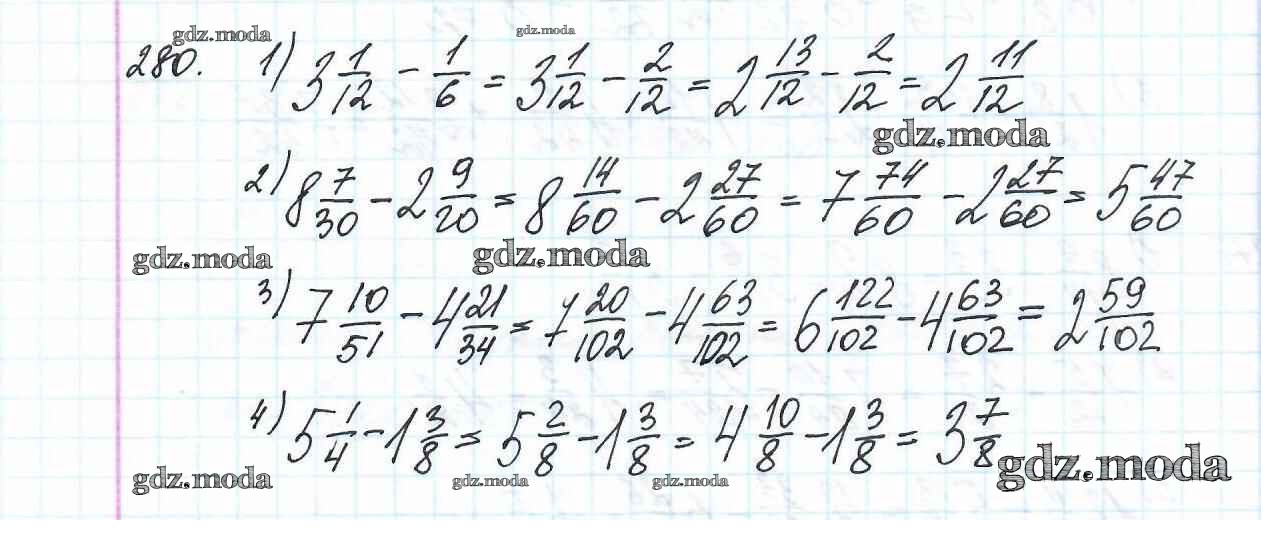 gdz.moda gdz.moda
280. 1) 3 1/12 - 1/6 = 3 1/12 - 2/12 = 2 13/12 - 2/12 = 2 11/12
gdz.moda
2) 8 7/30 - 2 9/20 = 8 14/60 - 2 27/60 = 7 74/60 - 2 27/60 = 5 47/60
gdz.moda gdz.moda
3) 7 10/51 - 4 21/34 = 7 20/102 - 4 63/102 = 6 122/102 - 4 63/102 = 2 59/102
4) 5 1/4 - 1 3/8 = 5 2/8 - 1 3/8 = 4 10/8 - 1 3/8 = 3 7/8
gdz.moda gdz.moda gdz.moda gdz.moda